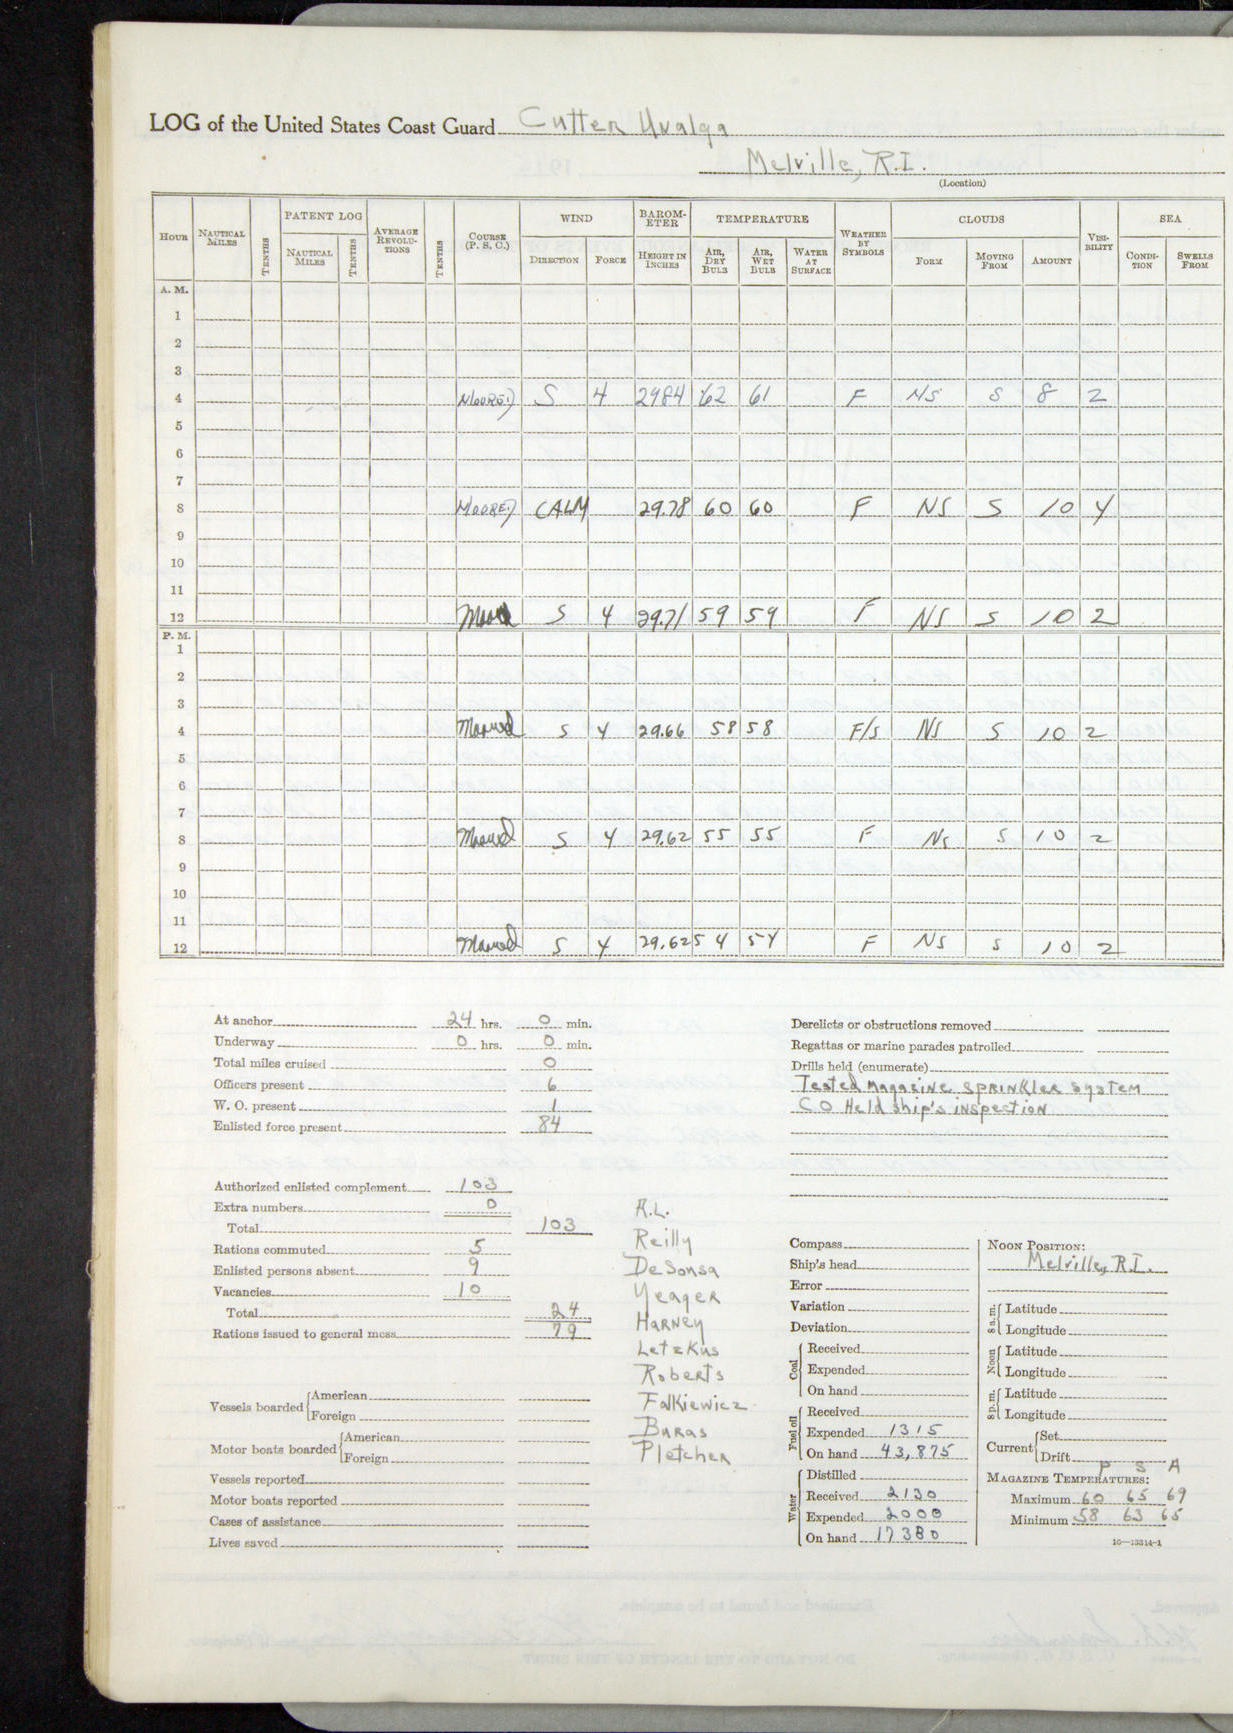 LOG of the United States Coast Guard Cutter Unalga
Melville, R.I.
(Location)
HOUR NAUTICAL MILES TENTHS PATENT LOG NAUTICAL MILES TENTHS AVERAGE REVOLUTIONS TENTHS COURSE (P. S. C.) WIND DIRECTION FORCE BAROMETER HEIGHT IN INCHES TEMPERATURE AIR, DRY BULB AIR, WET BULB WATER AT SURFACE WEATHER BY SYMBOLS CLOUDS FORM MOVING FROM AMOUNT VISIBILITY SEA CONDITION SWELLS FROM
A. M.
1
2
3
4 MOORED S 4 2984 62 61 F NS S 8 2
5
6
7
8 MOORED CALM 29.78 60 60 F NS S 10 4
9
10
11
12 Moored S 4 29.71 59 59 F NS S 10 2
P. M.
1
2
3
4 Moored S 4 29.66 58 58 F/S NS S 10 2
5
6
7
8 Moored S 4 29.62 55 55 F NS S 10 2
9
10
11
12 Moored S 4 29.62 54 54 F NS S 10 2
At anchor 24 hrs. 0 min.
Underway 0 hrs. 0 min.
Total miles cruised 0
Officers present 6
W. O. present 1
Enlisted force present 84
Authorized enlisted complement 103
Extra numbers 0
Total 103
Rations commuted 5
Enlisted persons absent 9
Vacancies 10
Total 24
Rations issued to general mess 79
Vessels boarded American
Foreign
Motor boats boarded American
Foreign
Vessels reported
Motor boats reported
Cases of assistance
Lives saved
A.L.
Reilly
DeSousa
Yeager
Harney
Letzkus
Roberts
Falkiewicz
Buras
Pletcher
Derelicts or obstructions removed
Regattas or marine parades patrolled
Drills held (enumerate)
Tested magazine sprinkler system
CO Held ship's inspection
Compass
Ship's head
Error
Variation
Deviation
Coal Received
Expended
On hand
Fuel oil Received
Expended 1315
On hand 43,875
Water Distilled
Received 2130
Expended 2000
On hand 17380
NOON POSITION:
Melville, R.I.
8 a. m. Latitude
Longitude
Noon Latitude
Longitude
8 p. m. Latitude
Longitude
Current Set
Drift
P S A
MAGAZINE TEMPERATURES:
Maximum 60 65 69
Minimum 58 63 65
16—13314-1